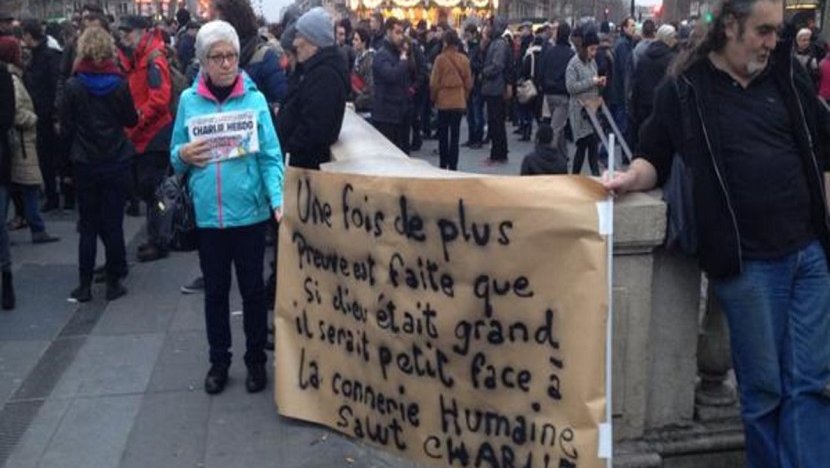 CHARLIE HEBDO
Une fois de plus
Preuve est faite que
si dieu était grand
il serait petit face à
La connerie Humaine
Salut CHARLIE